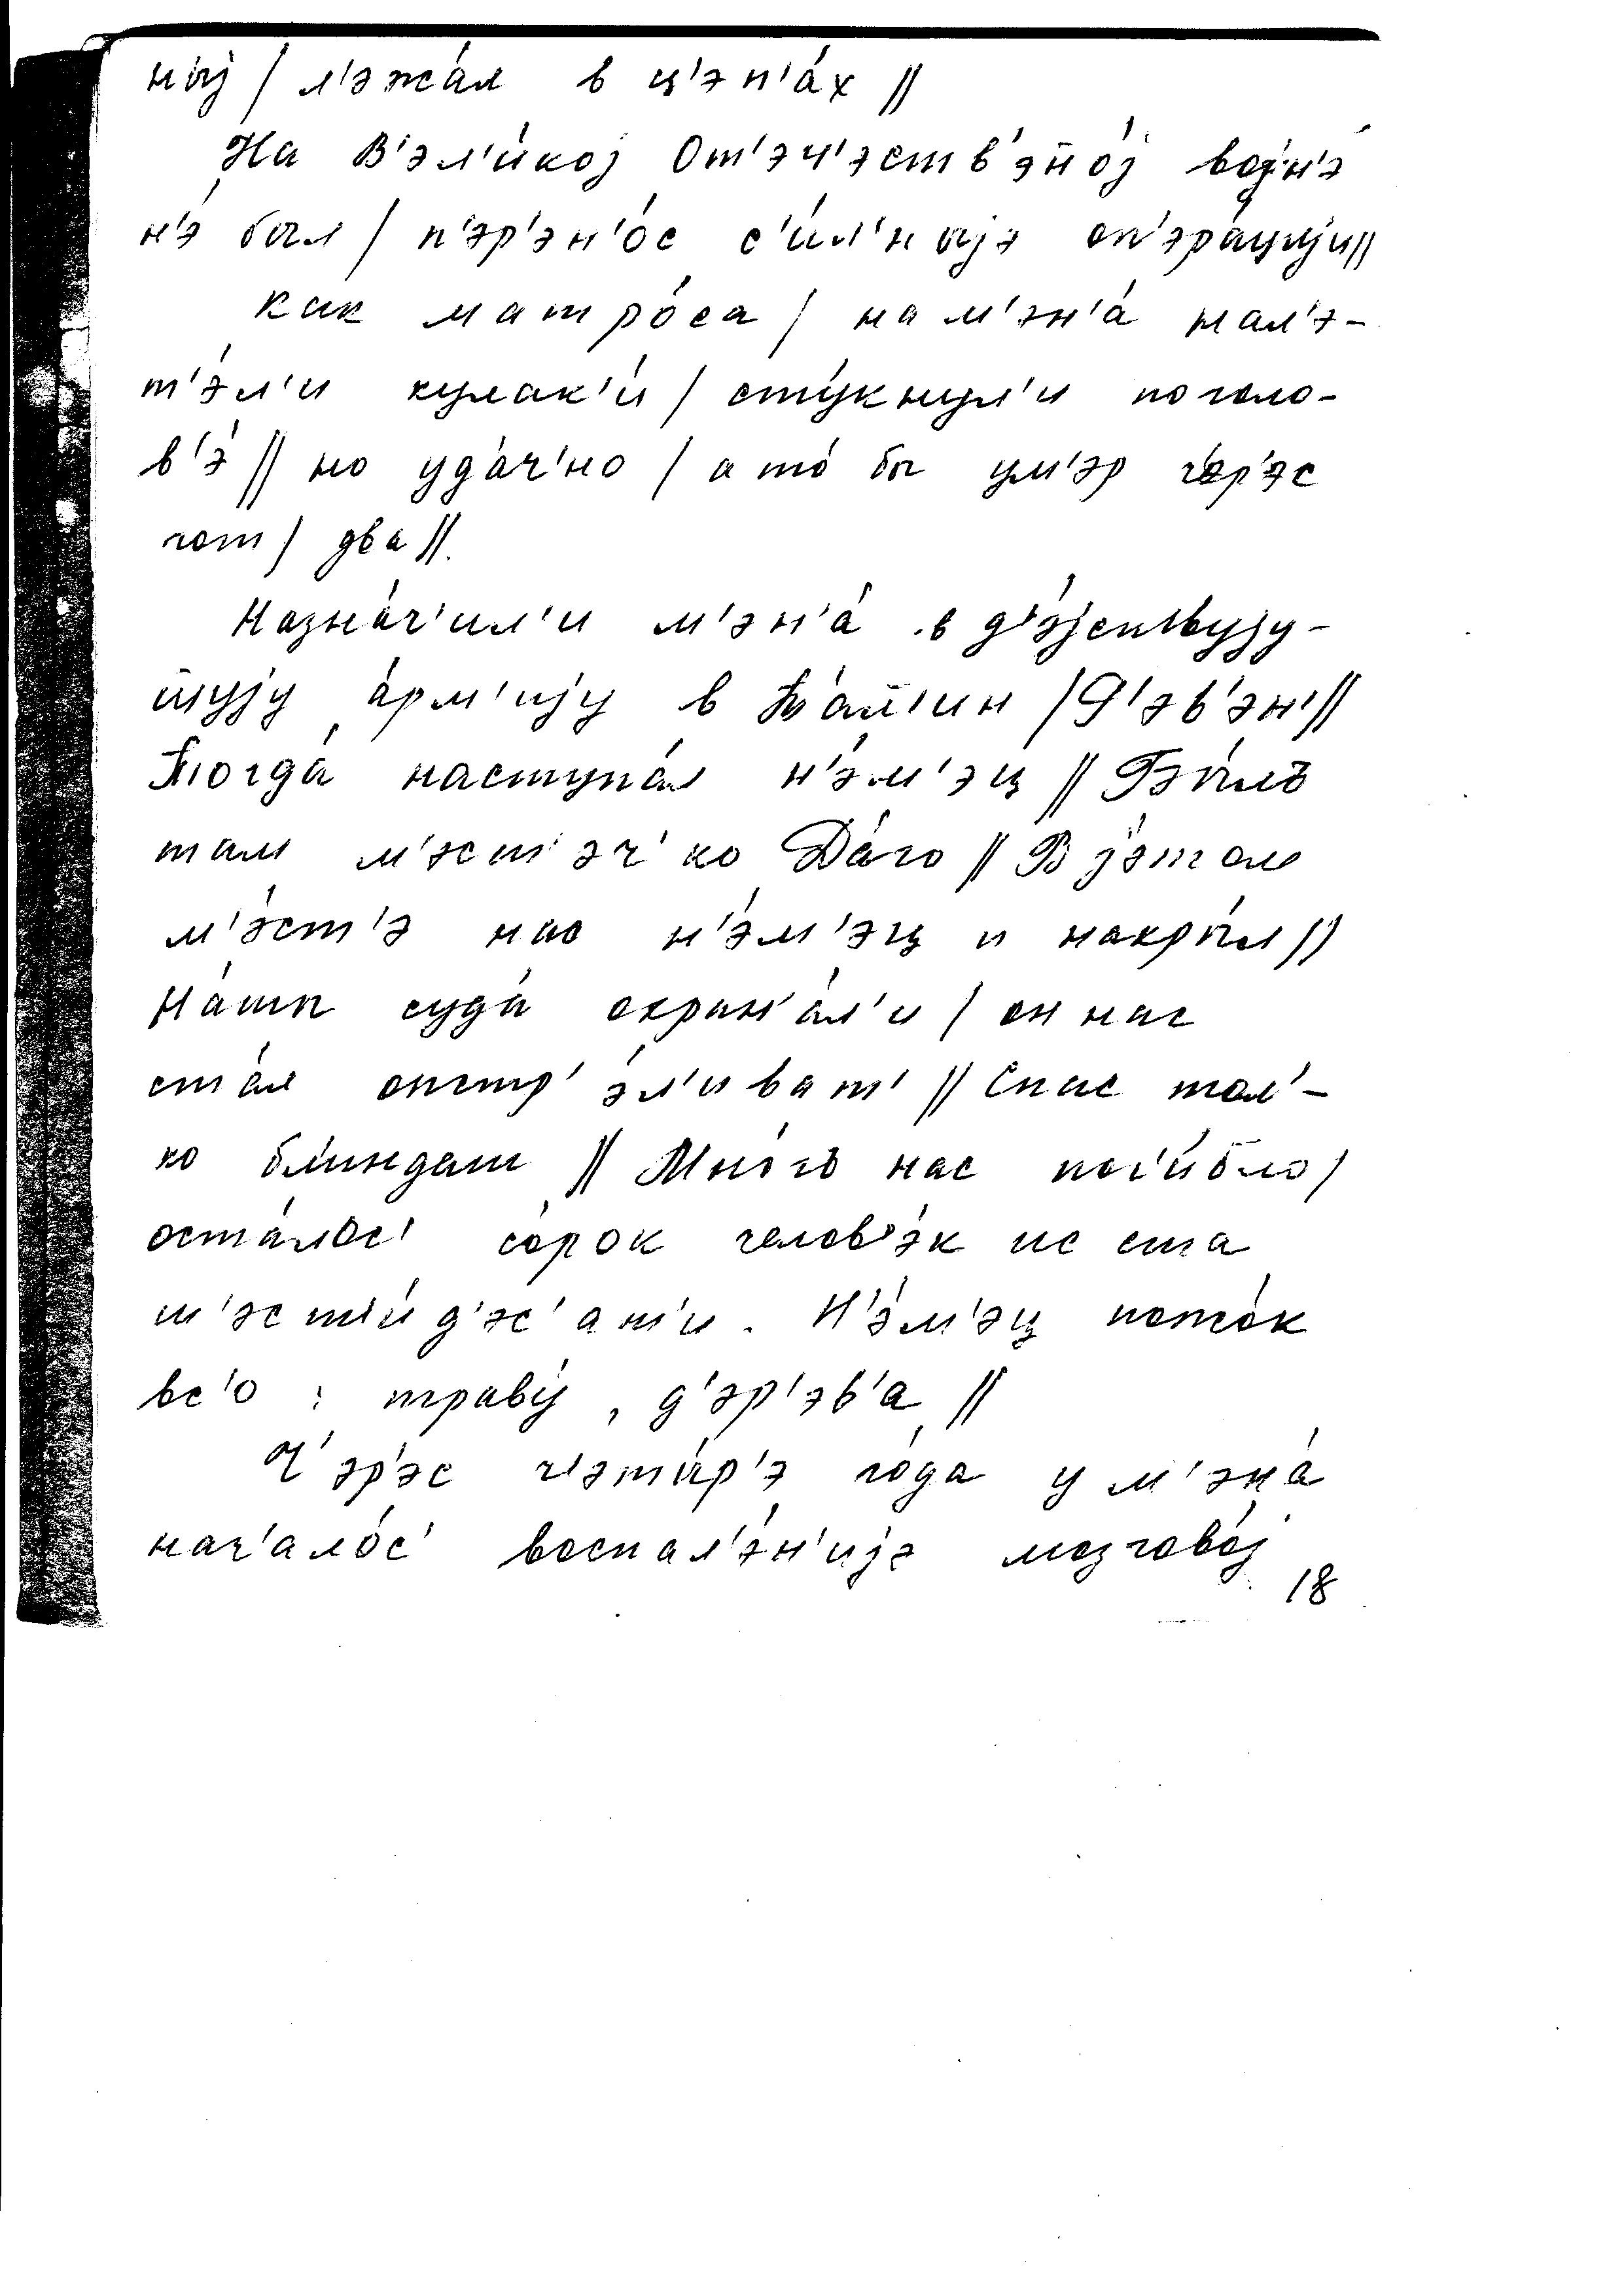 ныј / л'эжа́л в ц'эп'а́х //
На В'эл'и́кој От'эч'эств'эн̄ој војн'э́
н'э́ был / п'эр'эн'о́с с'и́л'ныјэ оп'эра́цыји //
как матро́са / на м'эн'а́ нал'э-
т'э́л'и кулак'и́ / сту́кнул'и по голо-
в'э́ // но уда́ч'но / а то́ бы ум'эр ч'эр'эс
гот / два //.
Назна́ч'ил'и м'эн'а́ в д'э́јствују-
ш̄ују а́рм'ију в Та́л̄'ин / Р'эв'эн' //
Тогда́ наступа́л н'э́м'эц // Бы́лъ
там м'эст'эч'ко Да́го // В јэ́том
м'э́ст'э нас н'э́м'эц и накры́л //
На́шы суда́ охран'а́л'и / он нас
ста́л опстр'э́л'иват' // Спас тол'-
ко бл'индаш // Мно́гъ нас пог'и́бло /
оста́лос' со́рок челов'э́к ис ста
ш'эст'и́д'эс'ат'и. Н'э́м'эц пожо́к
вс'о : траву́, д'эр'э́в'а //
Ч'эр'эс ч'эты́р'э го́да у м'эна́
нач'ало́с' воспал'э́н'ијэ мозгово́ј
18